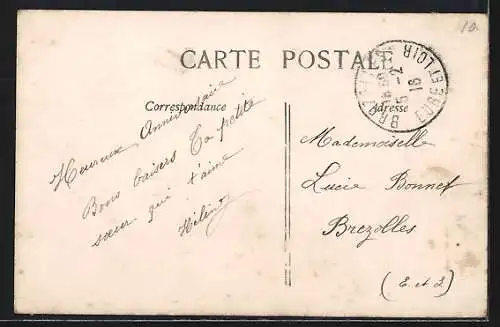 10
CARTE POSTALE
Correspondance
Adresse
EURE ET LOIR
5-2
16
Heureux Anniversaire
Bons baisers Ta petite
sœur qui t'aime
Mademoiselle
Lucie Bonnet
Brezolles
(E. et L)